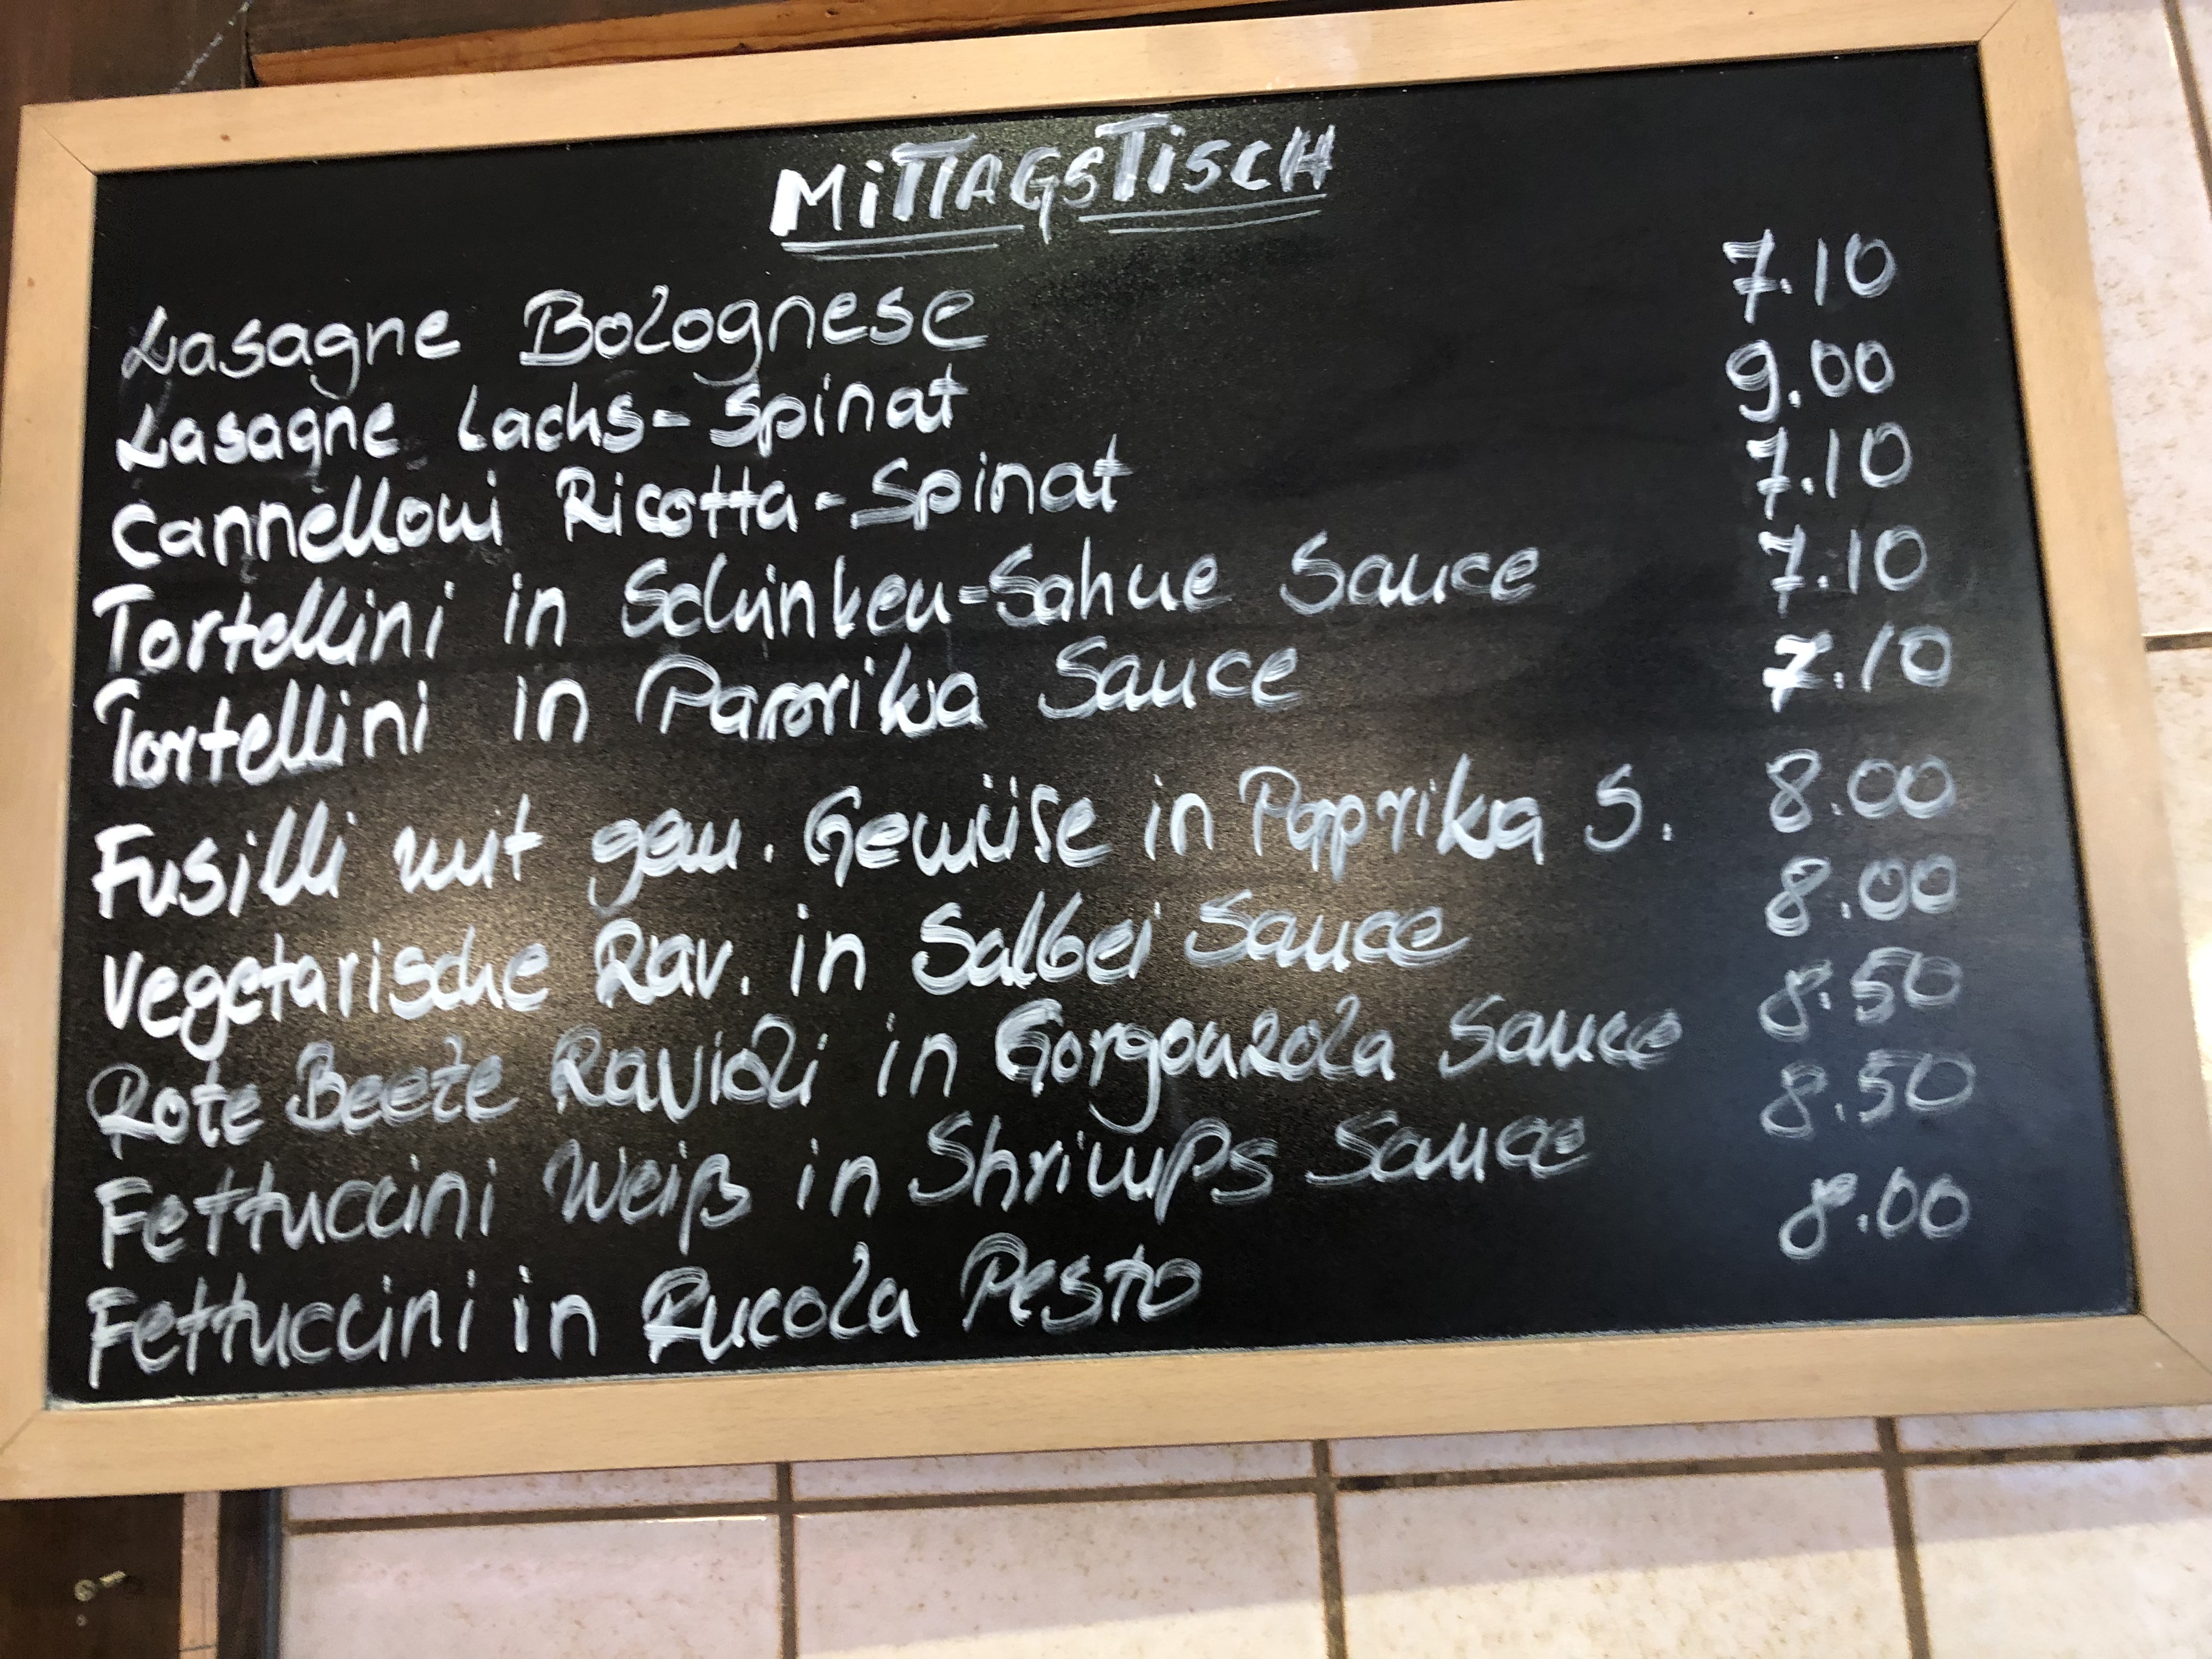 MITTAGSTISCH
Lasagne Bolognese 7.10
Lasagne Lachs-Spinat 9.00
Cannelloni Ricotta-Spinat 7.10
Tortellini in Schinken-Sahne Sauce 7.10
Tortellini in Paprika Sauce 7.10
Fusilli mit gem. Gemüse in Paprika S. 8.00
Vegetarische Rav. in Salbei Sauce 8.00
Rote Beete Ravioli in Gorgonzola Sauce 8.50
Fettuccini Weiß in Shrimps Sauce 8.50
Fettuccini in Rucola Pesto 8.00